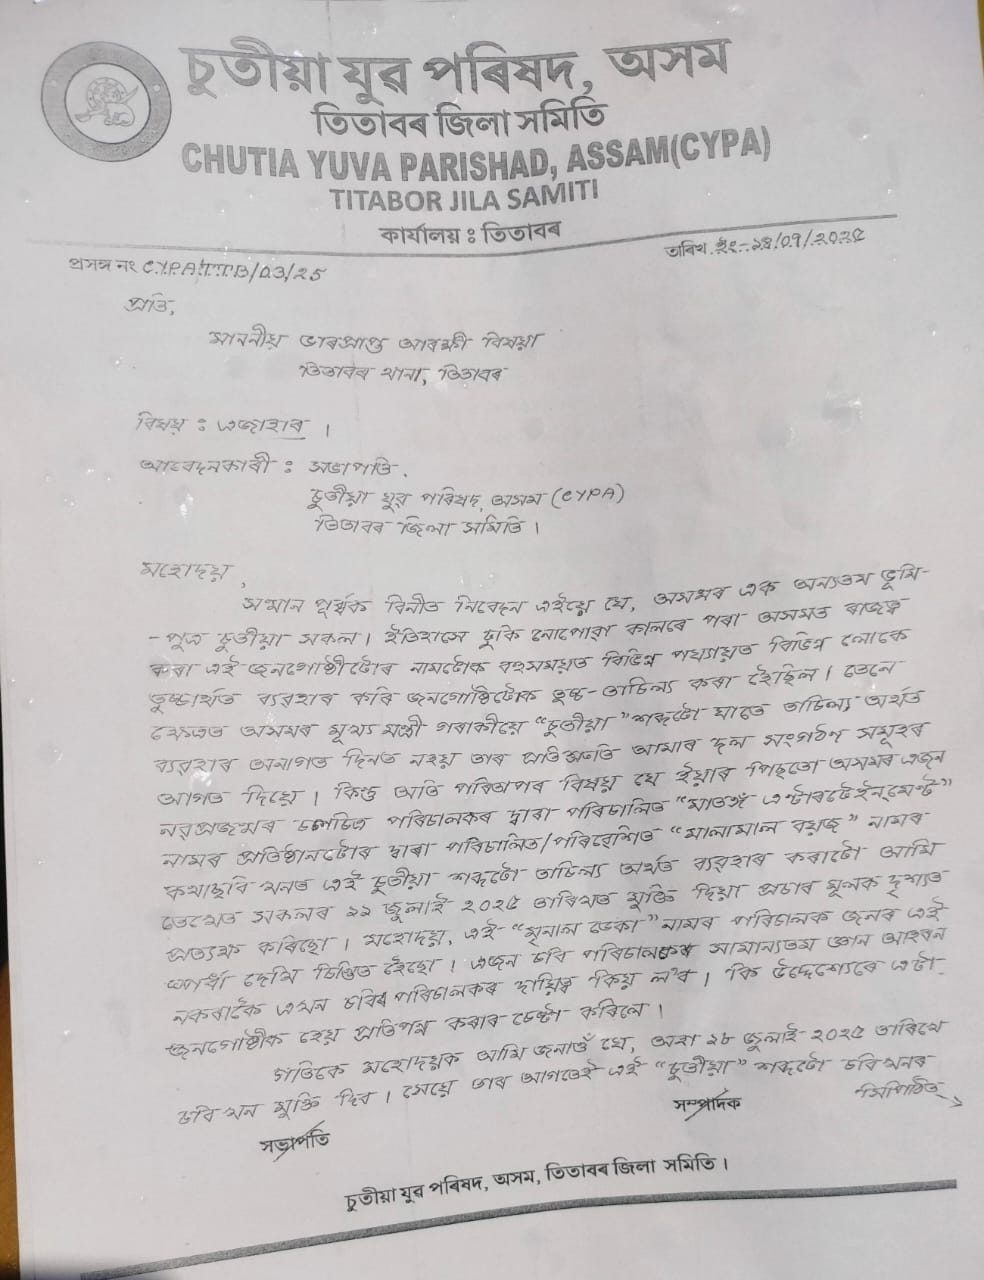 চুতীয়া যুৱ পৰিষদ, অসম
তিতাবৰ জিলা সমিতি
CHUTIA YUVA PARISHAD, ASSAM(CYPA)
TITABOR JILA SAMITI
কাৰ্যালয় : তিতাবৰ
প্ৰসঙ্গ নং CYPA/TTB/03/25
তাৰিখ
প্ৰতি,
মাননীয় ভাৰপ্ৰাপ্ত আৰক্ষী বিষয়া
তিতাবৰ থানা, তিতাবৰ
বিষয় : এজাহাৰ ।
আবেদনকাৰী : সভাপতি,
চুতীয়া যুৱ পৰিষদ, অসম (CYPA)
তিতাবৰ জিলা সমিতি ।
মহোদয়,
সন্মান পূৰ্ব্বক বিনীত নিবেদন এইয়ে যে, অসমৰ এক অন্যতম ভূমি-
-পুত্ৰ চুতীয়া সকল । ইতিহাসে ঢুকি নোপোৱা কালৰে পৰা অসমত ৰাজত্ব
কৰা এই জনগোষ্ঠীটোৰ নামটোক বহুসময়ত বিভিন্ন পৰ্য্যায়ত বিভিন্ন লোকে
তুচ্ছাৰ্থত ব্যৱহাৰ কৰি জনগোষ্ঠিটোক তুচ্ছ-তাচিল্য কৰা হৈছিল । তেনে
ক্ষেত্ৰত অসমৰ মূখ্য মন্ত্ৰী গৰাকীয়ে "চুতীয়া" শব্দটো যাতে তাচিল্য অৰ্থত
ব্যৱহাৰ অনাগত দিনত নহয় তাৰ প্ৰতিশ্ৰুতি আমাৰ দল সংগঠণ সমূহৰ
আগত দিয়ে । কিন্তু অতি পৰিতাপৰ বিষয় যে ইয়াৰ পিছতো অসমৰ এজন
নৱপ্ৰজন্মৰ চলচিত্ৰ পৰিচালকৰ দ্বাৰা পৰিচালিত "মাতঙ্গ এন্টাৰটেইন্‌মেণ্ট"
নামৰ প্ৰতিষ্ঠানটোৰ দ্বাৰা পৰিচালিত/পৰিৱেশিত "মালামাল বয়জ" নামৰ
কথাছবি খনত এই চুতীয়া শব্দটো তাচিল্য অৰ্থত ব্যৱহাৰ কৰাটো আমি
সকলৰ ২২ জুলাই ২০২৫ তাৰিখত মুক্তি দিয়া প্ৰচাৰ মূলক দৃশ্যত
প্ৰত্যক্ষ কৰিছো । মহোদয়, এই "মৃনাল ডেকা" নামৰ পৰিচালক জনৰ এই
স্পৰ্ধা দেখি চিন্তিত হৈছো । এজন চবি পৰিচালকৰ সামান্যতম জ্ঞান আহৰন
নকৰাকৈ এখন চবিৰ পৰিচালকৰ দায়িত্ব কিয় ল'ব । কি উদ্দেশ্যেৰে এটা
জনগোষ্ঠীক হেয় প্ৰতিপন্ন কৰাৰ চেষ্টা কৰিলে ।
গতিকে মহোদয়ক আমি জনাওঁ যে, অহা ২৮ জুলাই ২০২৫ তাৰিখে
চবি খন মুক্তি দিব । সেয়ে তাৰ আগতেই এই "চুতীয়া" শব্দটো চবি খনৰ
সিপিঠিত
সভাপতি
সম্পাদক
চুতীয়া যুৱ পৰিষদ, অসম, তিতাবৰ জিলা সমিতি ।